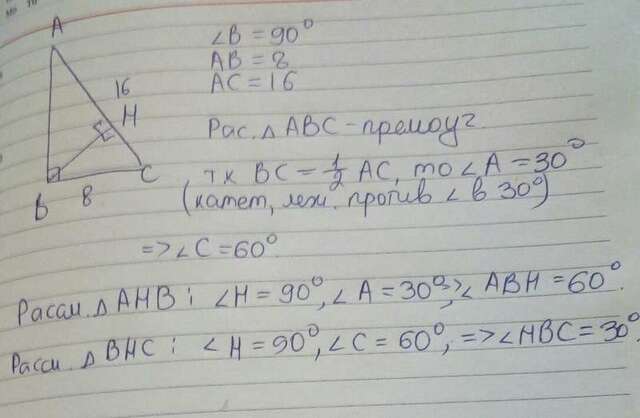 A
16
H
B
8
C
∠B = 90°
AB = 8
AC = 16
Рас. △ ABC - прямоуг.
тк BC = 1/2 AC, то ∠A = 30°
(катет, леж. против ∠ в 30°)
=> ∠C = 60°
Рассм. △ AHB: ∠H = 90°, ∠A = 30° => ∠ABH = 60°.
Рассм. △ BHC: ∠H = 90°, ∠C = 60°, => ∠HBC = 30°.